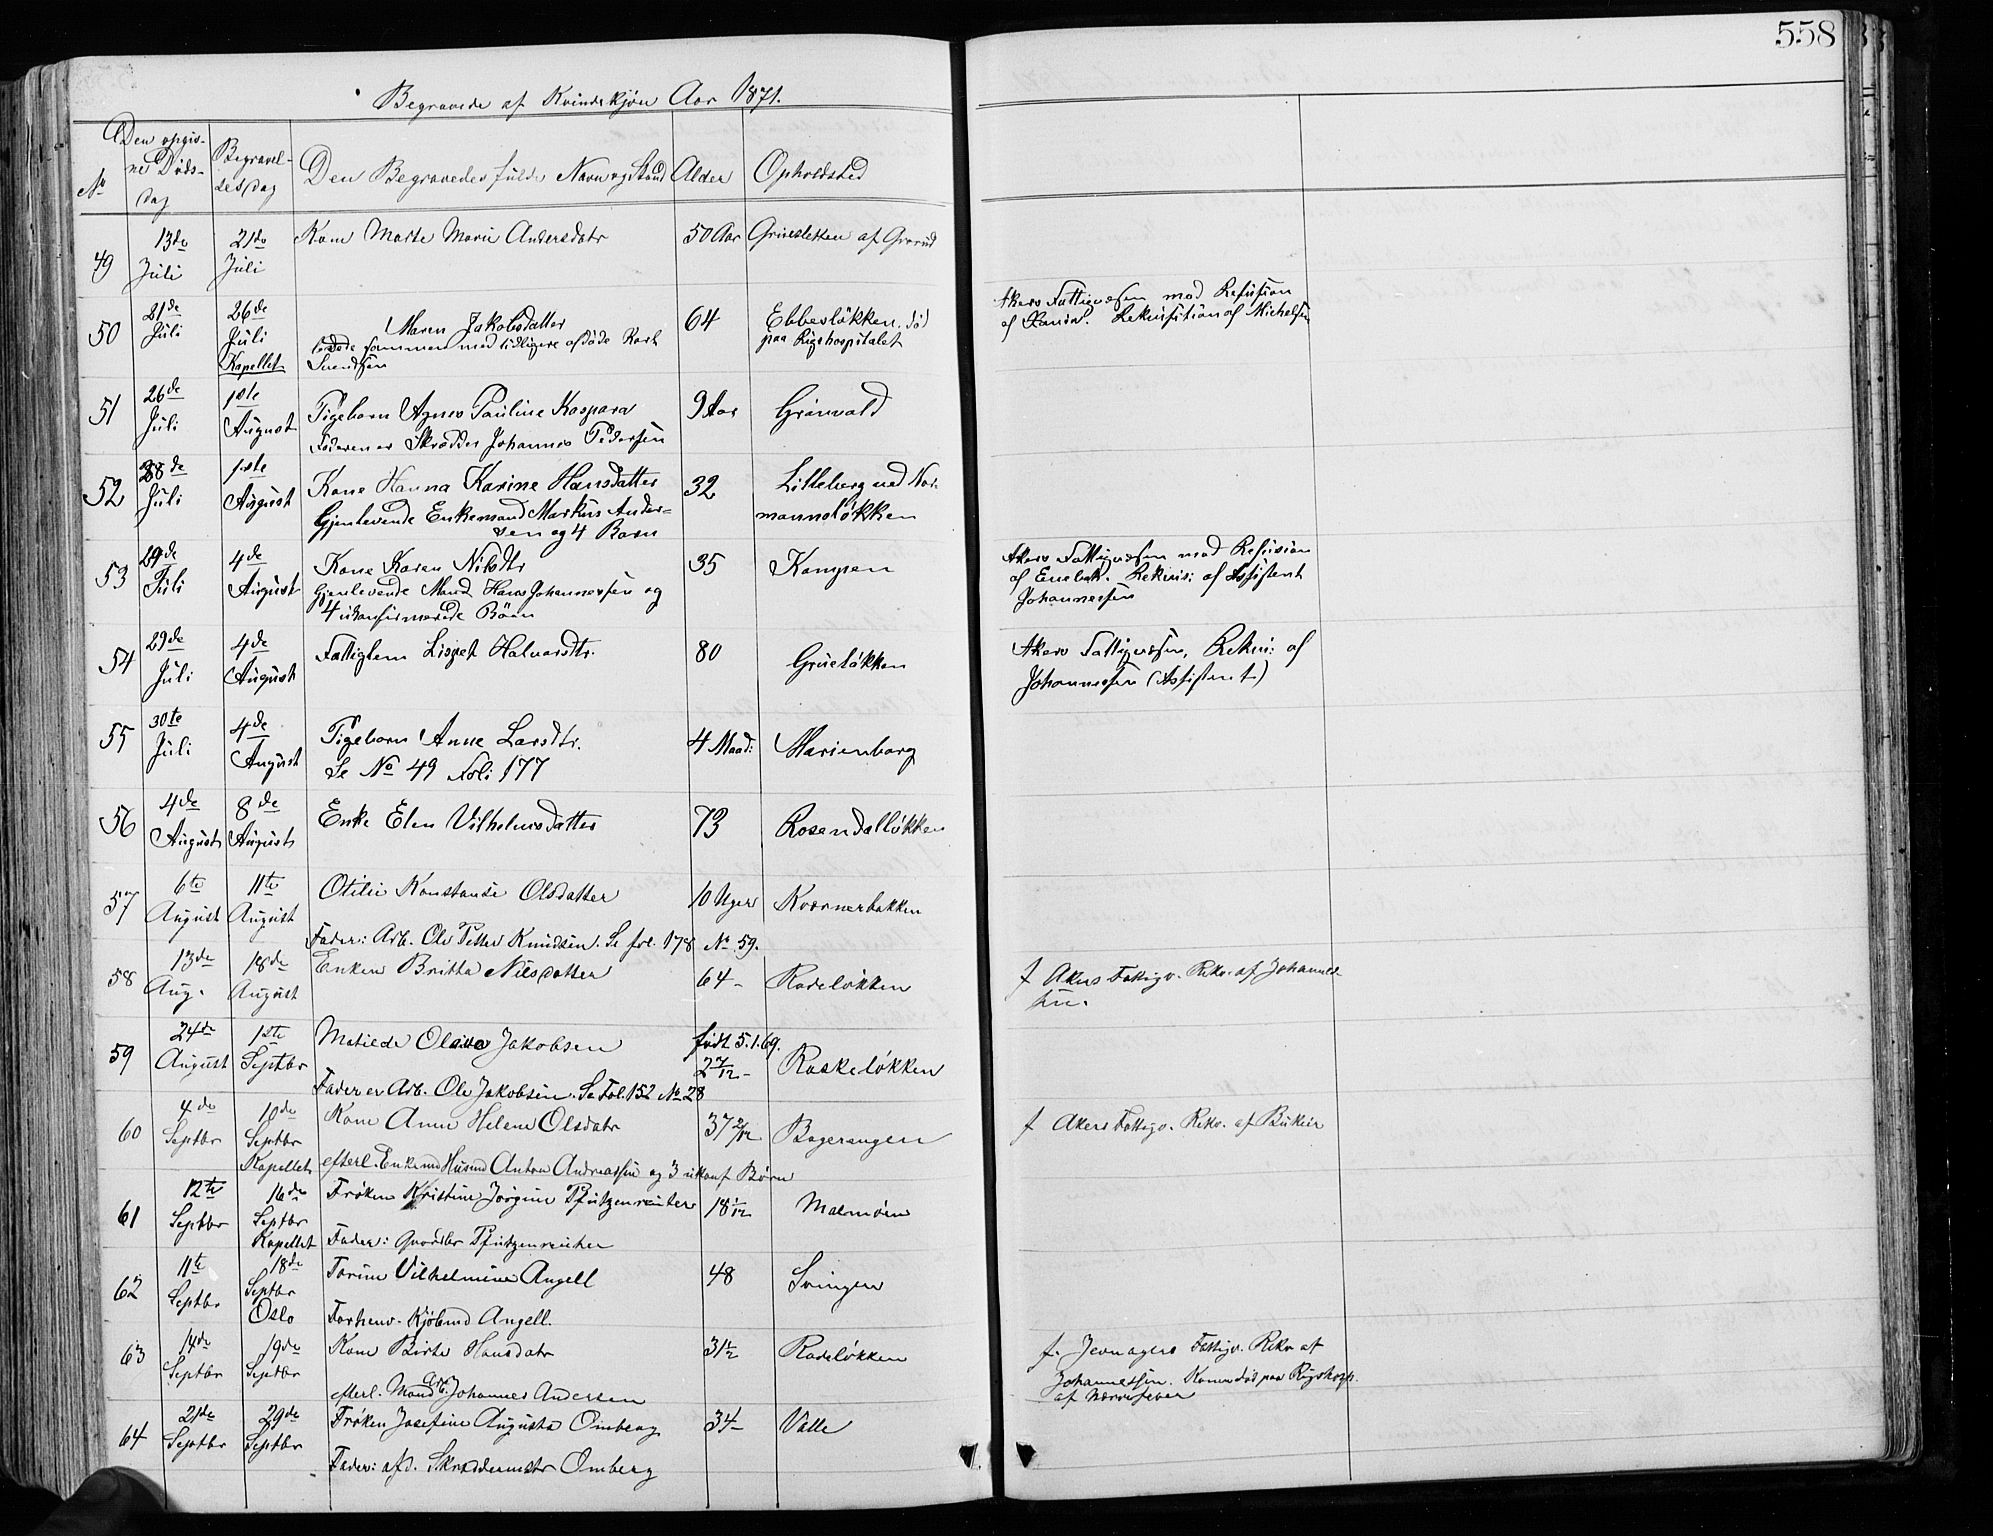 558
Begravede af Kvindekjøn Aar 1871.
No
Den opgiv-
ne Døds-
dag
Begravel-
sesdag
Den Begravedes fulde Navn og Stand
Alder
Opholdsted
49
13de Juli
21de Juli
Kone Marte Marie Andersdatr
50 Aar
af Grorud
50
21de Juli
26de Juli
Kapellet
Maren Jakobsdatter
levede sammen med tidligere afdøde
Svendsen
64
Ebbesløkken. død
paa Rigshospitalet
Akers Fattigvæsen mod Refusion
af Rekvisition af Michelsen
51
26de Juli
1ste August
Pigebarn Agnes Pauline Kaspara
Faderen er Skrædder Johannes Pedersen
9 Aar
Grønvold
52
28de Juli
1ste August
Kone Hanna Karine Hansdatter
Gjenlevende Enkemand Markus Ander-
sen og 4 Børn
32
Lilleberg ved Nor-
mannsløkken
53
29de Juli
4de August
Kone Karen Nilsdtr
Gjenlevende Mand Hans Johannessen og
4 ukonfirmerede Børn
35
Kampen
Akers Fattigvæsen mod Refusion
af Enebak. Rekvis: af Assistent
Johannessen
54
29de Juli
4de August
Fattiglem Lispet Halvorsdtr.
80
Grueløkken
Akers Fattigvæsen, Rekvi: af
Johannessen (Assistent)
55
30te Juli
4de August
Pigebarn Anne Larsdtr.
Se No 49 Foli 177
4 Maad:
Marienborg
56
4de August
8de August
Enke Elen Vilhelmsdatter
73
Rosendalløkken
57
6te August
11te August
Otilie Konstanse Olsdatter
Fader: Arb. Ole Petter Knudsen. Se fol. 178 No 59.
10 Uger
Kværnerbakken
58
13de Aug.
18de August
Enken Britta Nilsdatter
64 -
Rodeløkken
f Akers Fattigv. Rekv. af Johannes-
sen.
59
24de August
1ste Septbr
Matilde Olava Jakobsen
Fader er Arb. Ole Jakobsen. Se Fol. 152 No 28
født 5.1.69.
2 7/12 -
Raskeløkken
60
4de Septbr
10de Septbr
Kapellet
Kone Anne Helene Olsdatr
efterl. Enkemd Husmd Anton Andreassen og 3 ukonf Børn
37 2/12
Bagerangen
f Akers Fattigv. Rekv. af
61
12te Septbr
16de Septbr
Kapellet
Frøken Kristine Jørgine Pfutzenreuter
Fader: Pfutzenreuter
18 1/12
Malmøen
62
11te Septbr
18de Septbr
Oslo
Vilhelmine Angell
Forhenv. Kjøbmd Angell.
48
Svingen
63
14de Septbr
19de Septbr
Kone Birte Hansdatr
efterl. Mand Arb. Johannes Andersen
31½
Rodeløkken
f. Jevnagers Fattigv. Rekv af
Johannessen. Konen død paa Rigshosp.
af Nervefeber
64
21de Septbr
29de Septbr
Frøken Josefine Augusta Omberg
Fader: afd. Skræddermstr Omberg
34 -
Valle